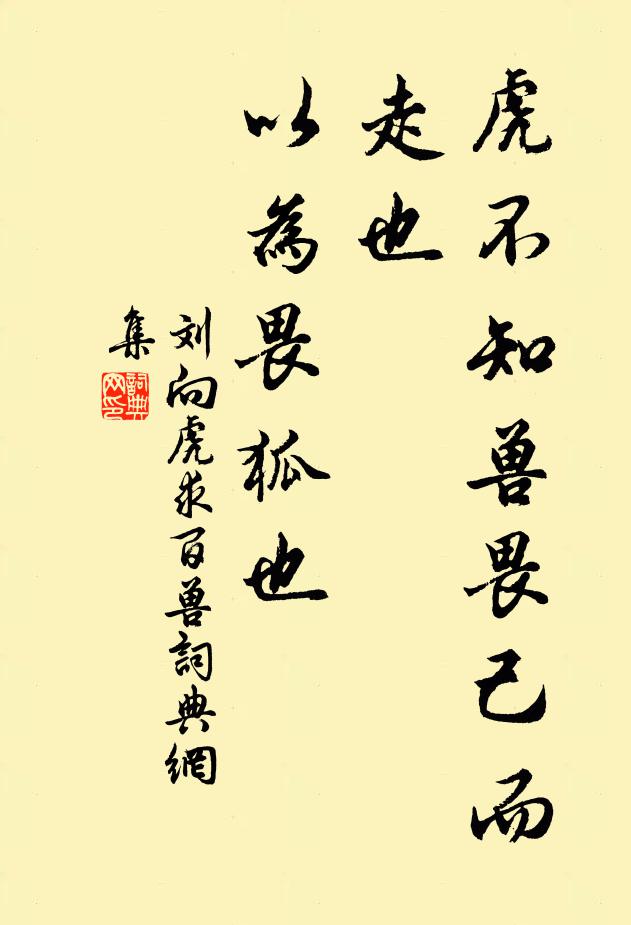 虎不知兽畏己而
走也
以為畏狐也
刘向虎求百兽詞典網
集
詞典
网印